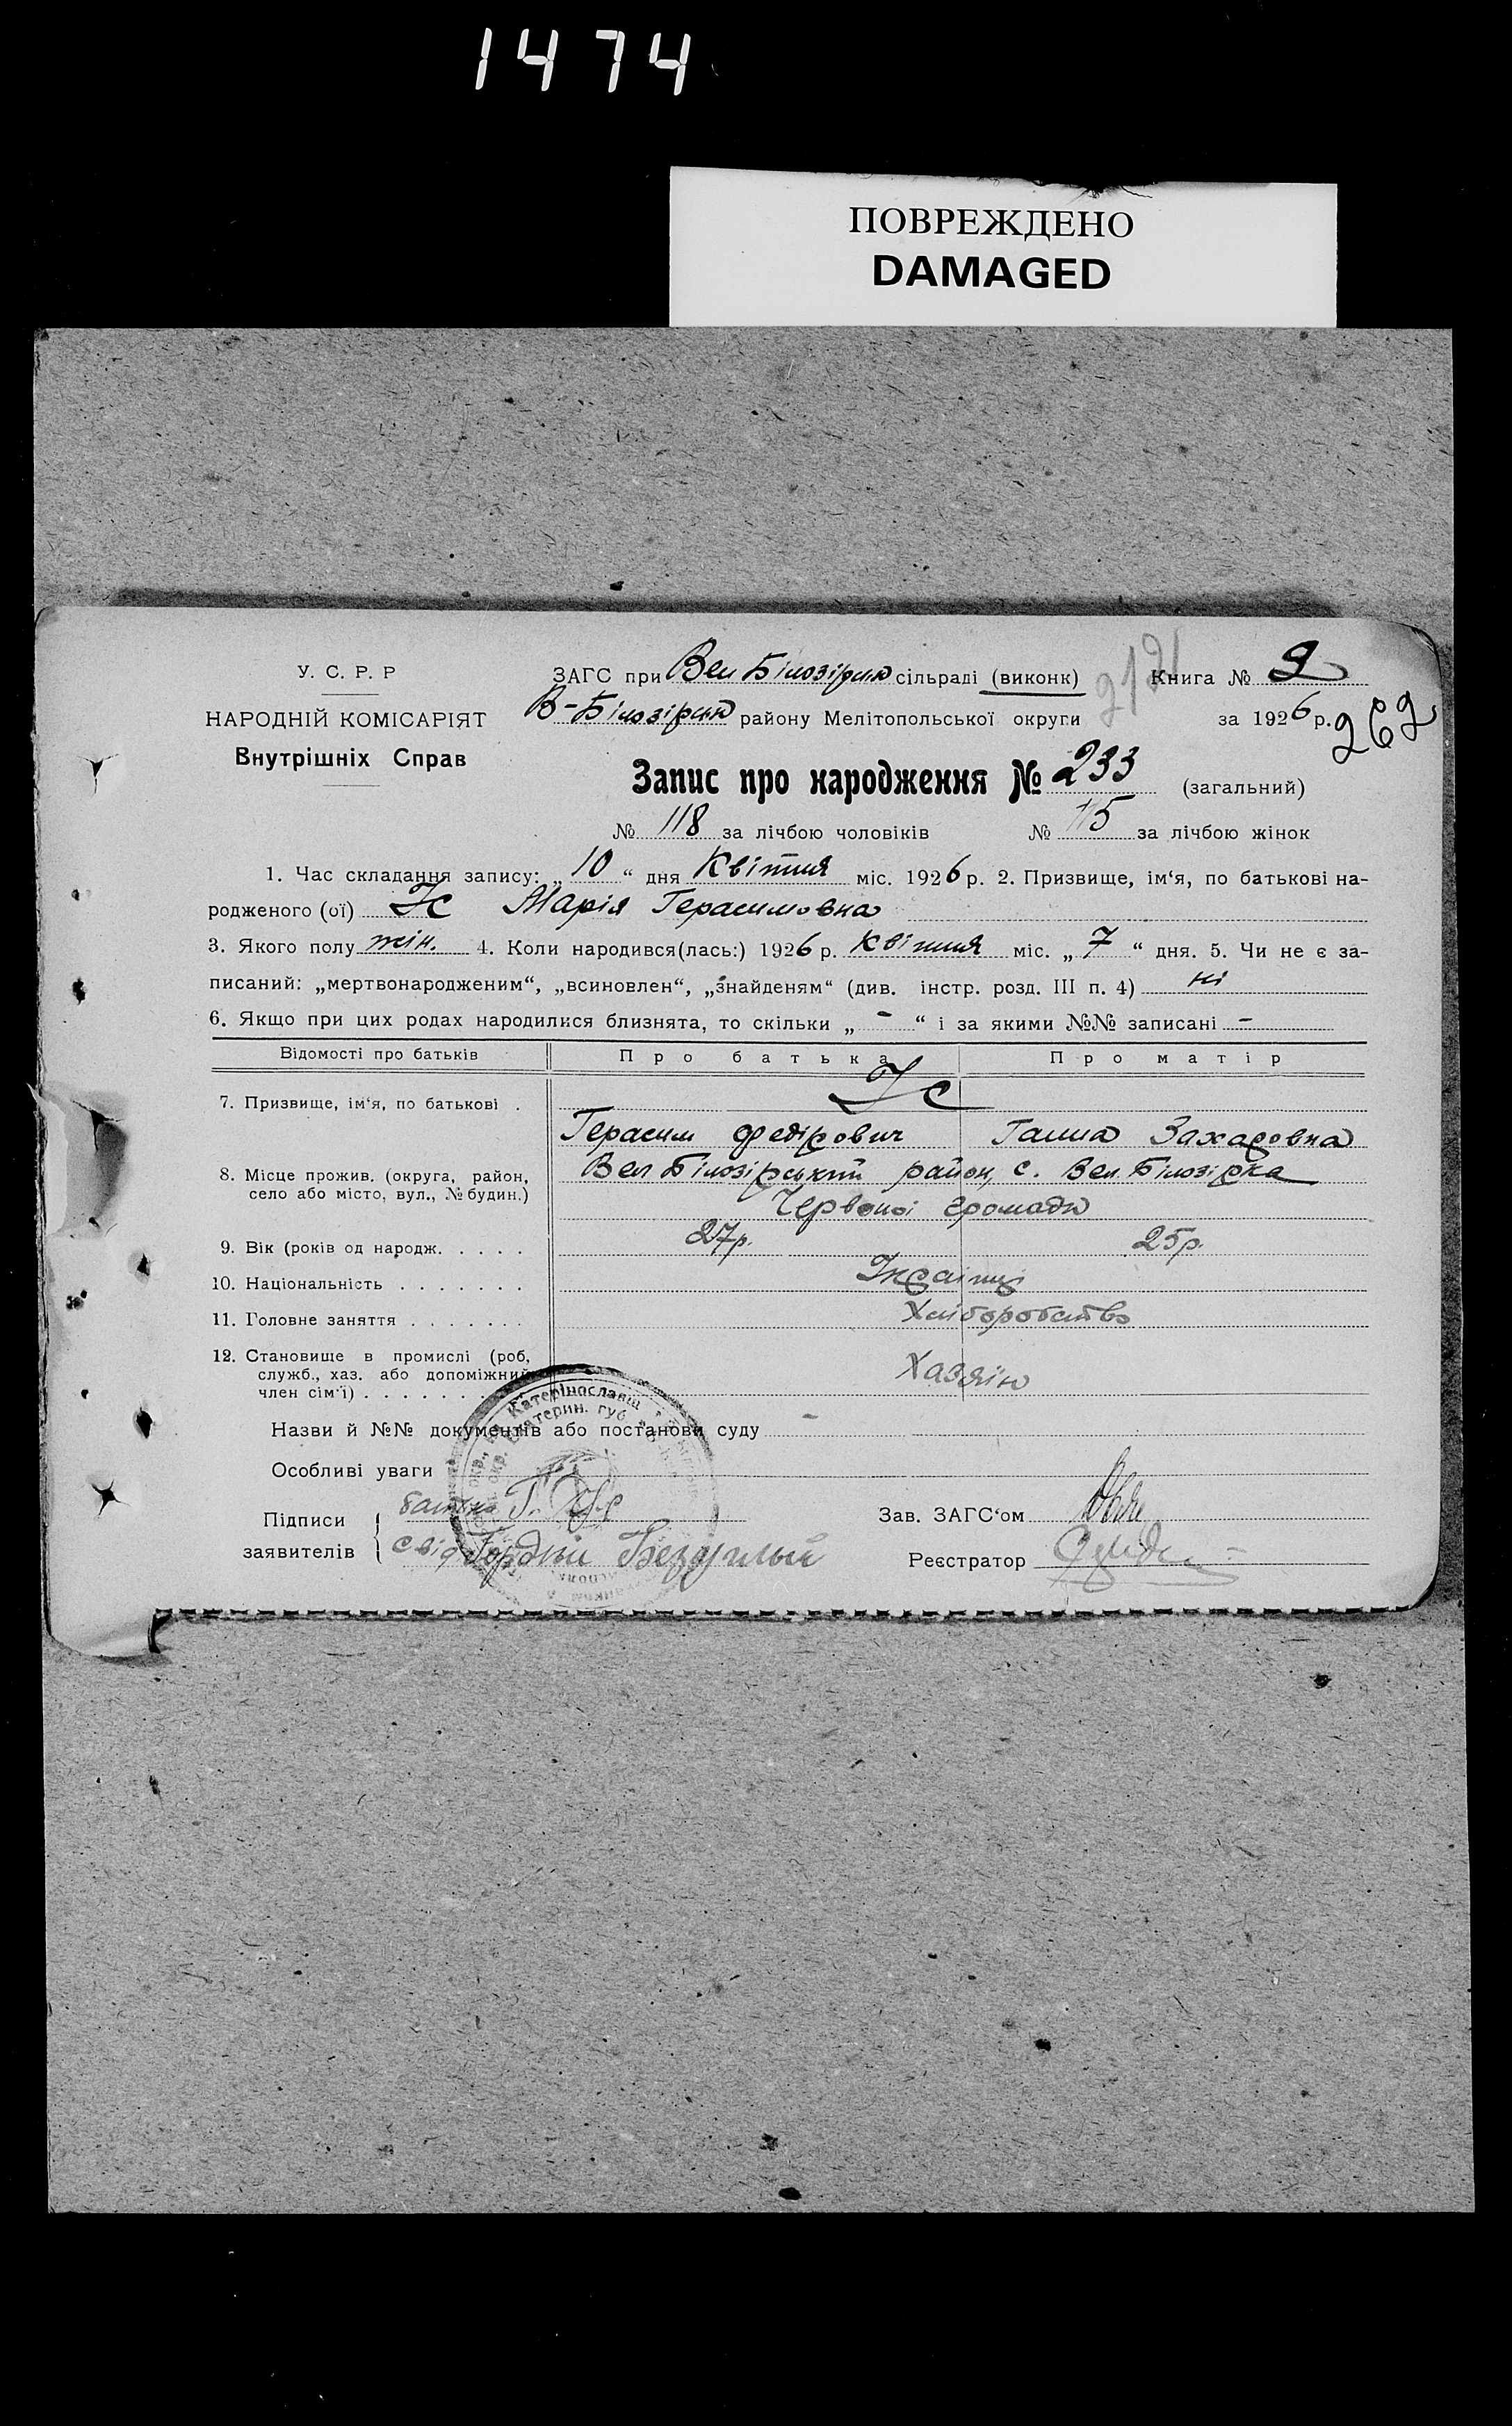 1474
ПОВРЕЖДЕНО
DAMAGED
У. С. Р. Р
НАРОДНІЙ КОМІСАРІЯТ
Внутрішніх Справ
ЗАГС при Вел Білозірськ сільраді (виконк)
В-Білозірськ району Мелітопольської округи
Книга № 2
за 1926 р.
262
Запис про народження № 233 (загальний)
№ 118 за лічбою чоловіків № 115 за лічбою жінок
1. Час складання запису: „10“ дня Квітня міс. 1926 р. 2. Призвище, ім‘я, по батькові на-
родженого (ої) Ус Марія Герасимовна
3. Якого полу жін. 4. Коли народився(лась:) 1926 р. Квітня міс. „7“ дня. 5. Чи не є за-
писаний: „мертвонародженим“, „всиновлен“, „знайденям“ (див. інстр. розд. III п. 4) ні
6. Якщо при цих родах народилися близнята, то скільки „-“ і за якими №№ записані -
Відомості про батьків Про батька Про матір
7. Призвище, ім‘я, по батькові .
Ус
Герасим Федірович Ганна Захаровна
8. Місце прожив. (округа, район,
село або місто, вул., № будин.)
Вел Білозірський район, с. Вел. Білозірка
Червоної громади
9. Вік (років од народж. . . . . 27р. 25р.
10. Національність . . . . . . . Українці
11. Головне заняття . . . . . . . Хліборобство
12. Становище в промислі (роб,
служб., хаз. або допоміжний
член сім‘ї) . . . . . . . Хазяїн
Назви й №№ документів або постанови суду -
Особливі уваги
Підписи
заявителів
батько Г. Ус
свід Гордій
Зав. ЗАГС‘ом
Реєстратор
Катерінославщ
Екатерин. губ